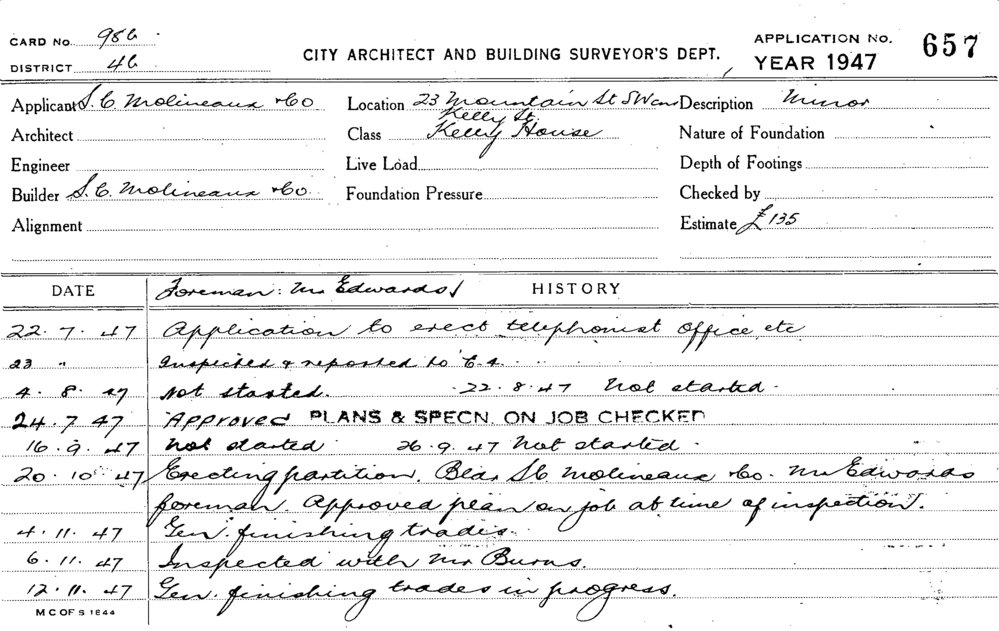 CARD No. 986
DISTRICT 46
CITY ARCHITECT AND BUILDING SURVEYOR'S DEPT.
APPLICATION No. 657
YEAR 1947
Applicant S. C. Molineaux & Co Location 23 Mountain St Description Minor
Kelly St.
Architect Class Kelly House Nature of Foundation
Engineer Live Load Depth of Footings
Builder S. C. Molineaux & Co. Foundation Pressure Checked by
Alignment Estimate £135
DATE Foreman: Mr Edwards HISTORY
22.7.47 Application to erect telephonist office etc
23 " Inspected & reported to C.A.
4.8.47 Not started. 22.8.47 Not started.
24.7.47 Approved PLANS & SPECN. ON JOB CHECKED
16.9.47 Not started. 26.9.47 Not started.
20.10.47 Erecting partition. Bldr S. C. Molineaux & Co. Mr Edwards
foreman. Approved plan on job at time of inspection.
4.11.47 Gen. finishing trades.
6.11.47 Inspected with Mr Burns.
12.11.47 Gen. finishing trades in progress.
M C OF S 1844